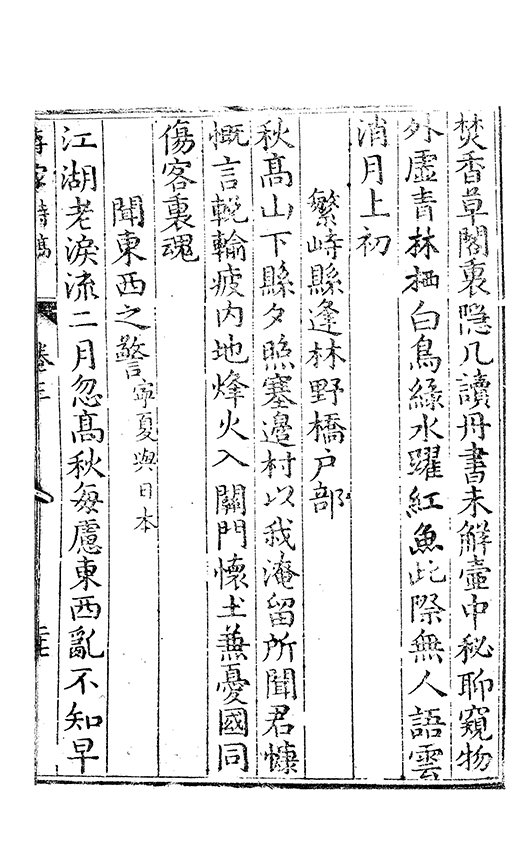 焚香草閣裏隱几讀丹書未解壺中秘聊窺物
外虛青林栖白鳥綠水躍紅魚此際無人語雲
消月上初
繁峙縣逢林野橋戶部
秋高山下縣夕照塞邊村以我淹留所聞君慷
慨言輓輪疲内地烽火入關門懷土兼憂國同
傷客裏魂
聞東西之警寧夏與日本
江湖老淚流二月忽高秋每慮東西亂不知早
卷三